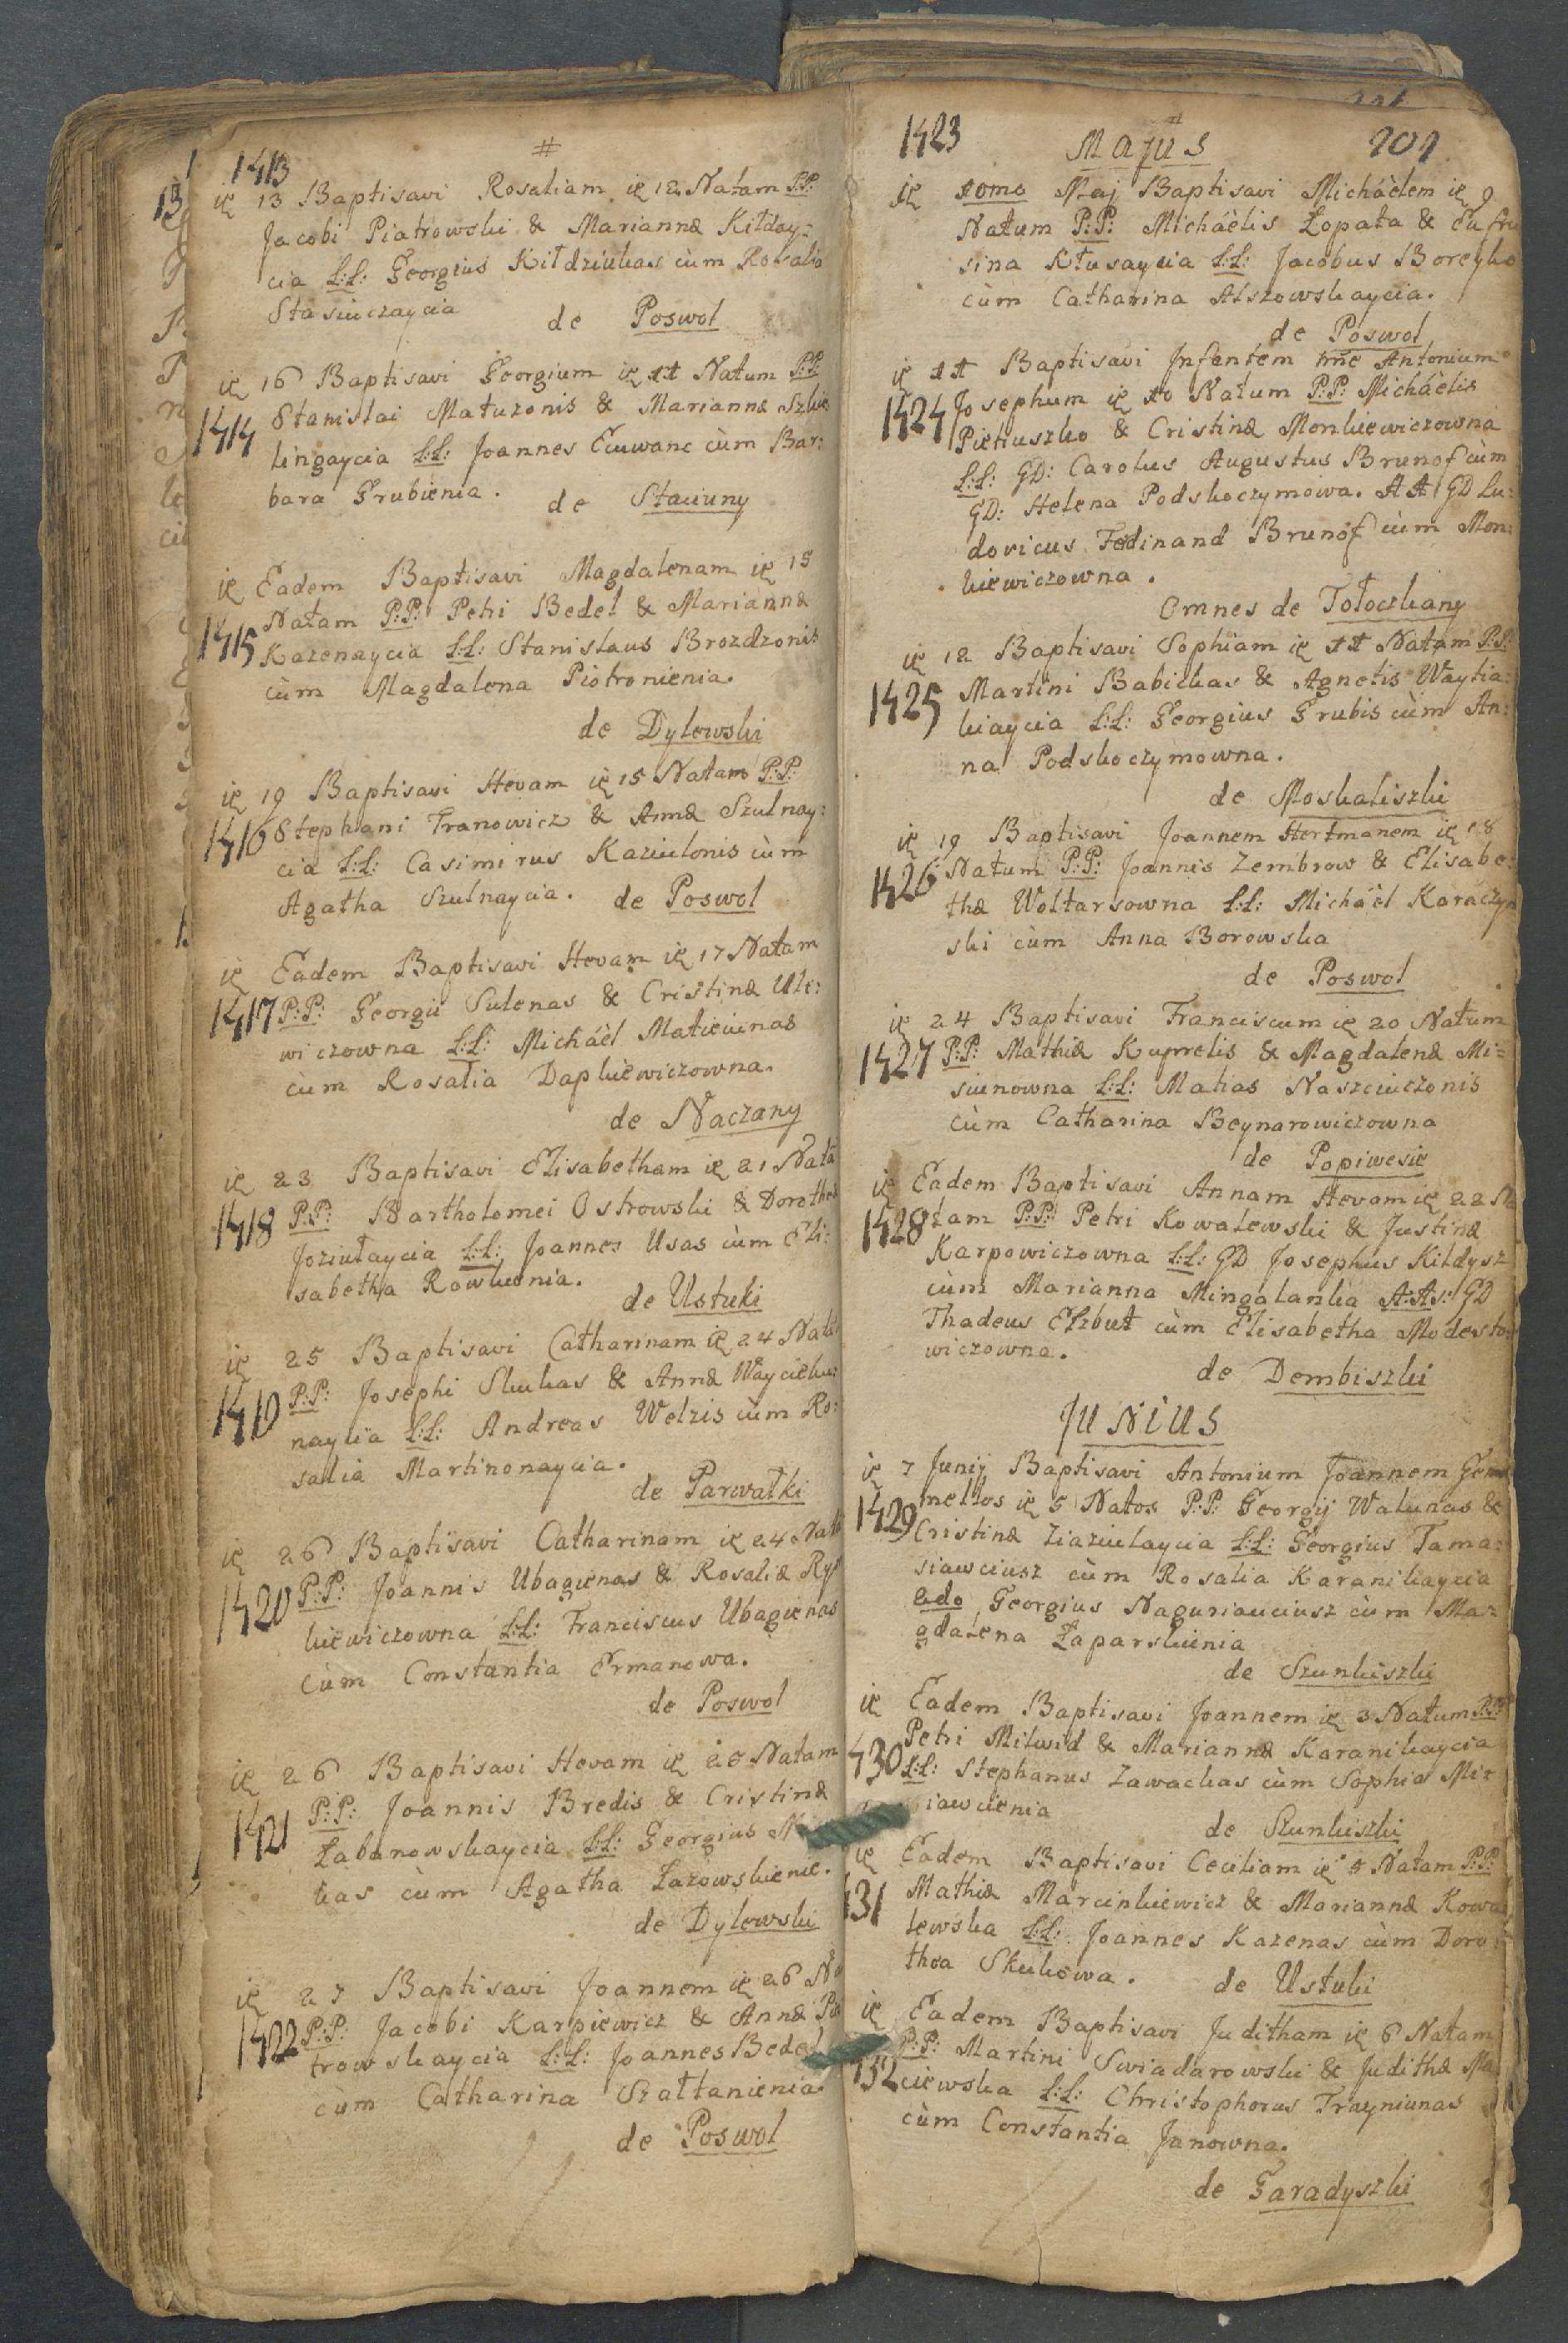 1413
#
ię 13 Baptisavi Rosaliam ię 12 Natam P.P:
Jacobi Piatrowski & Mariannæ Kiłday:
cia L:L: Georgius Kiłdziukas cùm Rosalia
Stasiuczaycia de Poswol
ię 16 Baptisavi Georgium ię 11 Natum P:P:
1414 Stanislai Matuzonis & Mariannæ
lingaycia L:L: Joannes Eiuwanc cùm Bar:
bara Grubienia. de Staciuny
ię Eadem Baptisavi Magdalenam ię 15
Natam P:P: Petri Bedel & Mariannæ
1415 Kazenaycia L:L: Stanislaus Brozdzonis
cùm Magdalena Piotronienia.
de Dylewski
ię 19 Baptisavi Hevam ię 15 Natam P.P:
1416 Stephani Tranowicz & Annæ Szulnay:
cia L:L: Casimirus Kaziulonis cùm
Agatha Szulnaycia. de Poswol
ię Eadem Baptisavi Hevam ię 17 Natam
1417 P:P: Georgii Sulenas & Cristinæ Ule:
wiczowna L:L: Micháèl Matieiunas
cùm Rosalia Dapkiewiczowna.
de Naczany
ię 23 Baptisavi Elisabetham ię 21 Nata
1418 P.P: Bartholomei Ostrowski & Dorothea
Joziułaycia L:L: Joannes Usas cùm Eli:
sabetha Rawkienia.
de Ustuki
ię 25 Baptisavi Catharinam ię 24 Nata
1419 P:P: Josephi Skukas & Annæ Waycieku:
naycia L:L: Andreas Welzis cùm Ro:
salia Martinonaycia.
de Parwałki
ię 26 Baptisavi Catharinam ię 24 Nata
1420 P:P: Joannis Ubagienas & Rosaliæ Ryt
kiewiczowna L:L: Franciscus Ubagienas
cùm Constantia Ermanowa.
de Poswol
ię 26 Baptisavi Hevam ię 25 Natam
1421 P:P: Joannis Bredis & Cristinæ
Łabanowskaycia L:L: Georgius
kas cùm Agatha Łazowskienie.
de Dylewski
ię 27 Baptisavi Joannem ię 26 Na
1422 P:P: Jacobi Karpiewicz & Annæ Pia
trowskaycia L:L: Joannes Bedel
cùm Catharina Szałtanienia.
de Poswol
1423 Majus 201
ię 10mo Maj Baptisavi Micháèlem ię 9
Natum P:P: Micháèlis Łopata & Eufru
sina Kłusaycia L:L: Jacobus Boreyko
cùm Catharina Alszowskaycia.
de Poswol
ię 11 Baptisavi Infantem nne Antonium
1424 Josephum ię 10 Natum P:P: Micháèlis
Pietruszko & Cristinæ Monkiewiczowna
L:L: GD: Carolus Augustus Brunof cùm
GD: Helena Podskoczymowa. AA GD Lu:
dovicus Fedinand Brunof cùm Mon:
kiewiczowna.
Omnes de Tołoczkany
ię 12 Baptisavi Sophiam ię 11 Natam P:P:
1425 Martini Babickas & Agnetis Waytia:
kiaycia L:L: Georgius Grubis cùm An:
na Podskoczymowna.
de Moskaliszki
ię 19 Baptisavi Joannem Hertmanem ię 18
1426 Natum P:P: Joannis Zembrow & Elisabe:
thæ Woltarsowna L:L: Micháèl Karaczyn
ski cùm Anna Borowska
de Poswol
ię 24 Baptisavi Franciscum ię 20 Natum
1427 P:P: Mathiæ Kuprelis & Magdalenæ Mi:
siunowna L:L: Matias Naszciuczonis
cùm Catharina Beynarowiczowna
de Popiwesie
ię Eadem Baptisavi Annam Hevam ię 22 Na
1428 tam P:P: Petri Kowalewski & Justinæ
Karpowiczowna L:L: GD Josephus Kildysz
cùm Marianna Mingalanka A:As: GD
Thadeus Elzbut cùm Elisabetha Modesto:
wiczowna.
de Dembiszki
Junius
ię 7 Junij Baptisavi Antonium Joannem Ge
mellos ię 5 Natos P:P: Georgij Walunas &
1429 Cristinæ Ziaziulaycia L:L: Georgius Tama:
siawciusz cùm Rosalia Karanikaycia
2do Georgius Naguriauciusz cùm Ma:
gdalena Łaparskienia
de Szunkiszki
ię Eadem Baptisavi Joannem ię 3 Natum P:P:
Petri Milwid & Mariannæ Karanikaycia
430 L:L: Stephanus Zawackas cùm Sophia Mi:
iawcienia
de Szunkiszki
ię Eadem Baptisavi Ceciliam ię 5 Natam P:P:
431 Mathiæ Marcinkiewicz & Mariannæ Kowa
lewska L:L: Joannes Kazenas cùm Doro
thea Skukowa. de Ustuki
ię Eadem Baptisavi Juditham ię 6 Natam
P:P: Martini Swiadarowski & Judithæ Ma
432 ciewska L:L: Christophorus Trayniunas
cùm Constantia Janowna.
de Garadyszki